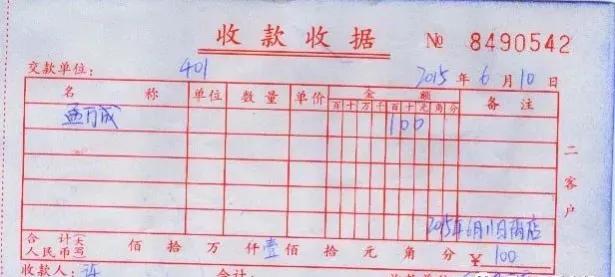 收款收据 № 8490542
交款单位: 401 2015 年 6 月 10 日
名 称 单位 数量 单价 金 额 备 注
百 十 万 千 百 十 元 角 分
孟万成 100
二 客 户
2015年6月11日
合 计 人民币(大写) 佰 拾 万 仟 壹 佰 拾 元 角 分 ¥ 100
收款人: 许 合计: